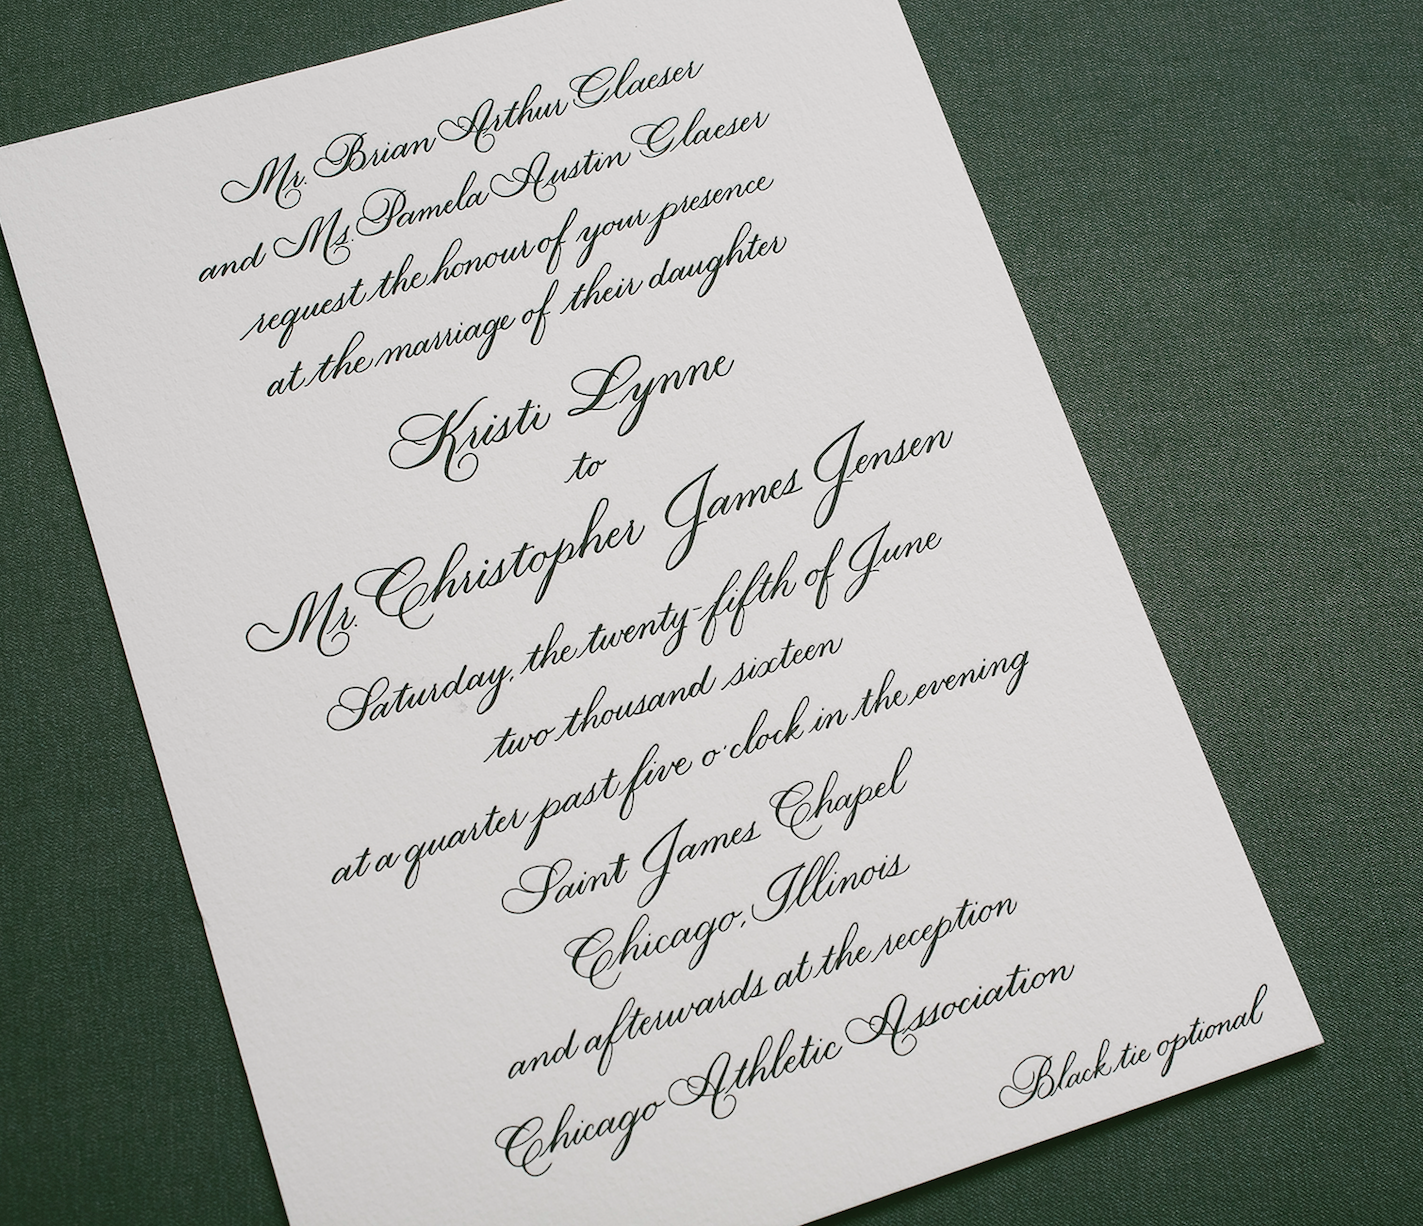 Mr. Brian Arthur Glaeser
and Ms. Pamela Austin Glaeser
request the honour of your presence
at the marriage of their daughter
Kristi Lynne
to
Mr. Christopher James Jensen
Saturday, the twenty-fifth of June
two thousand sixteen
at a quarter past five o'clock in the evening
Saint James Chapel
Chicago, Illinois
and afterwards at the reception
Chicago Athletic Association
Black tie optional